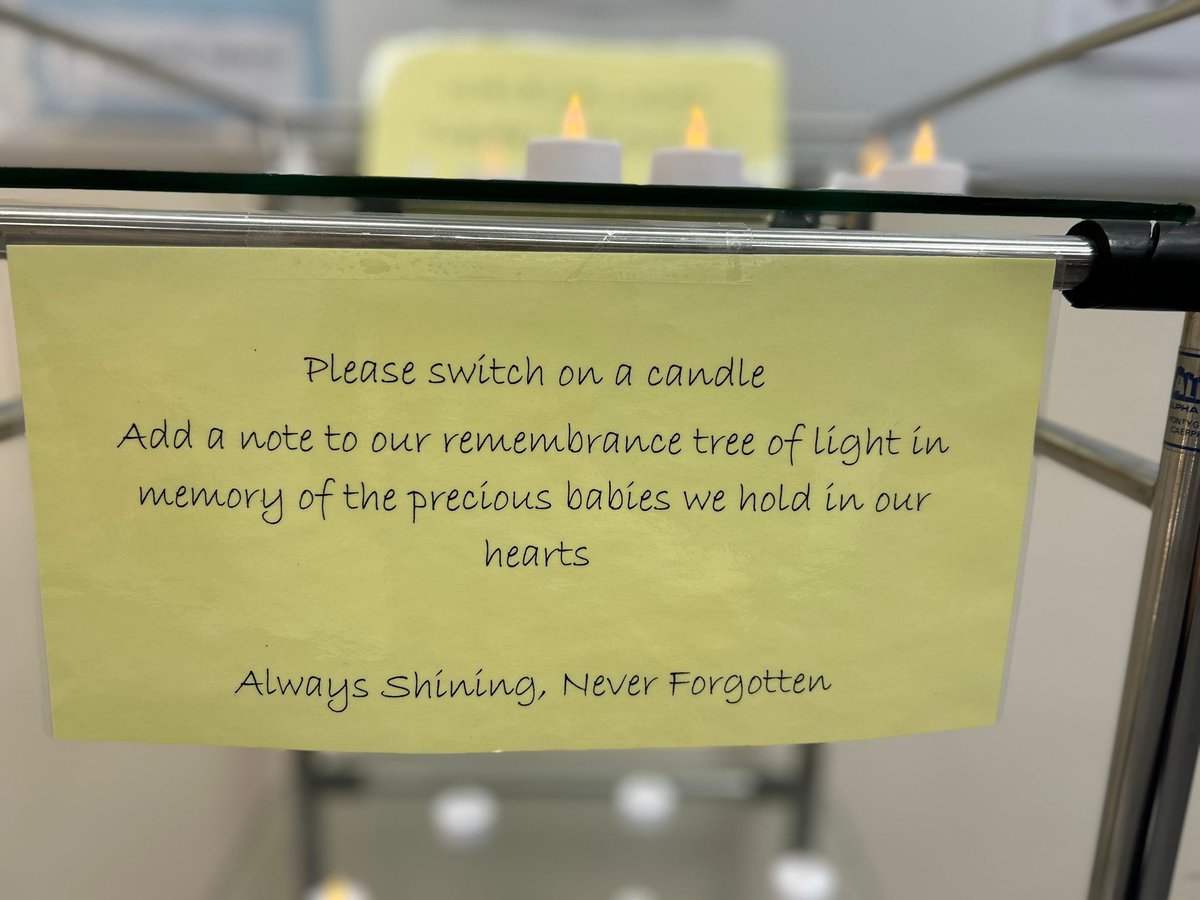 Please switch on a candle
Add a note to our remembrance tree of light in
memory of the precious babies we hold in our
hearts
Always Shining, Never Forgotten